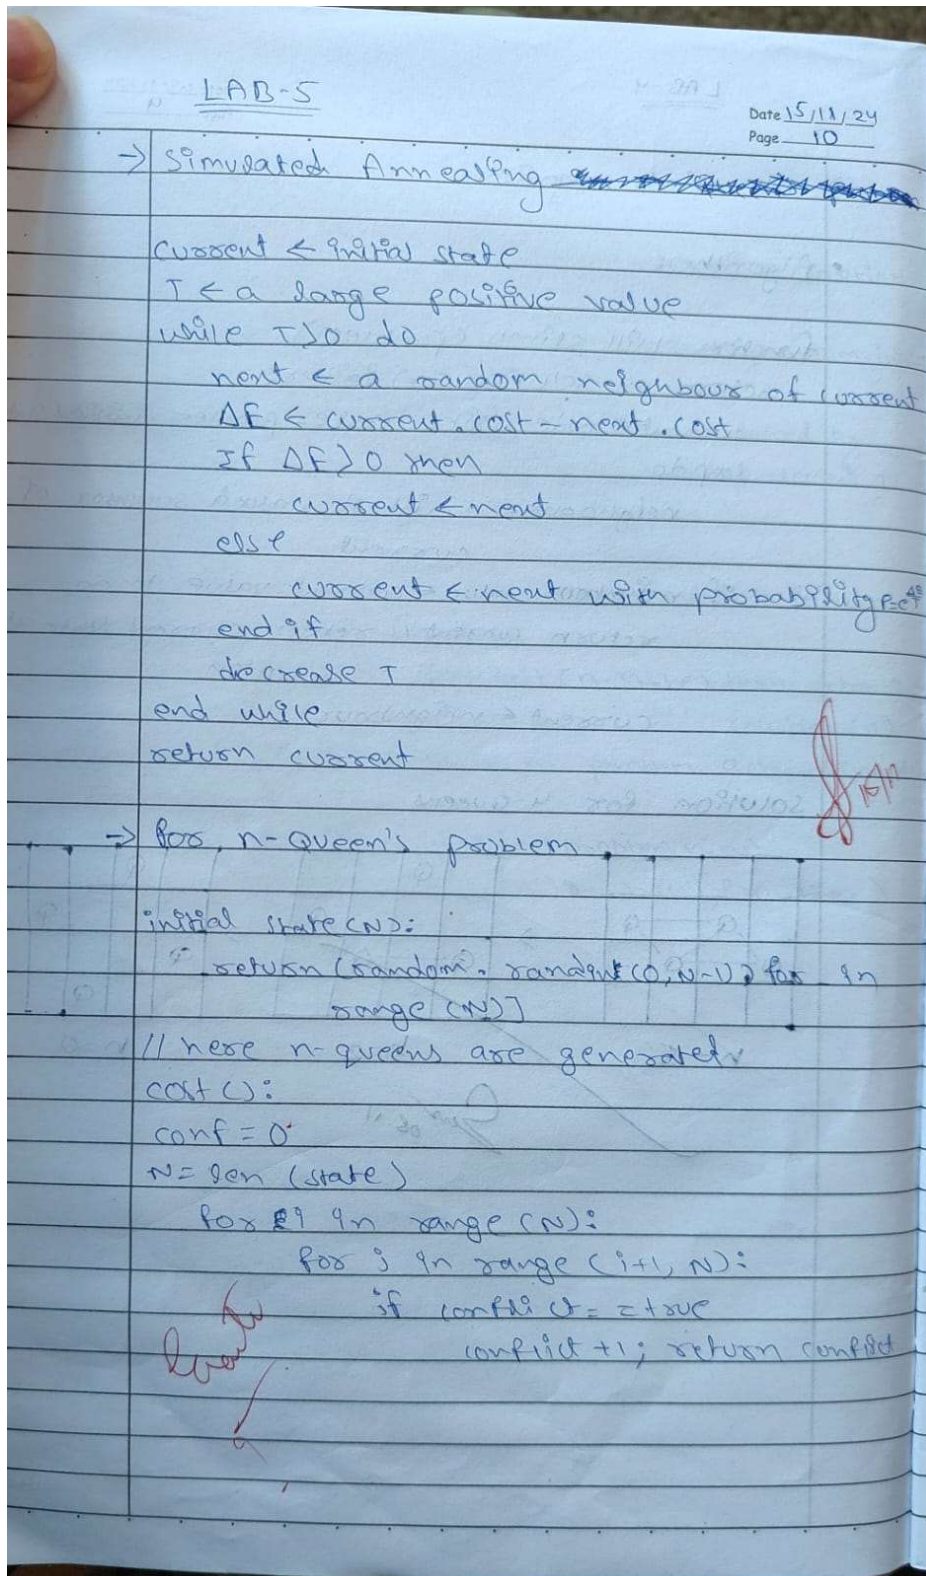 LAB-5
Date 15/11/24
Page 10
→ Simulated Annealing
current ← initial state
T ← a large positive value
while T>0 do
next ← a random neighbour of current
ΔE ← current.cost - next.cost
If ΔE>0 then
current ← next
else
current ← next with probability
end if
decrease T
end while
return current
→ for n-Queen's problem
initial state(N):
return (random. randint(0,N-1) for in
range (N)]
// here n-queens are generated.
cost ():
conf = 0
N = len (state)
for i in range (N):
for j in range (i+1, N):
if conflict = = true
conflict +1; return conflict